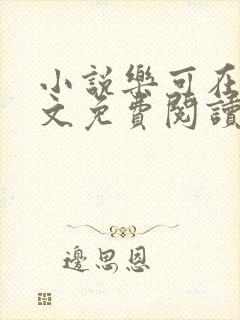 小説樂可在
文免費閱讀
邊思恩